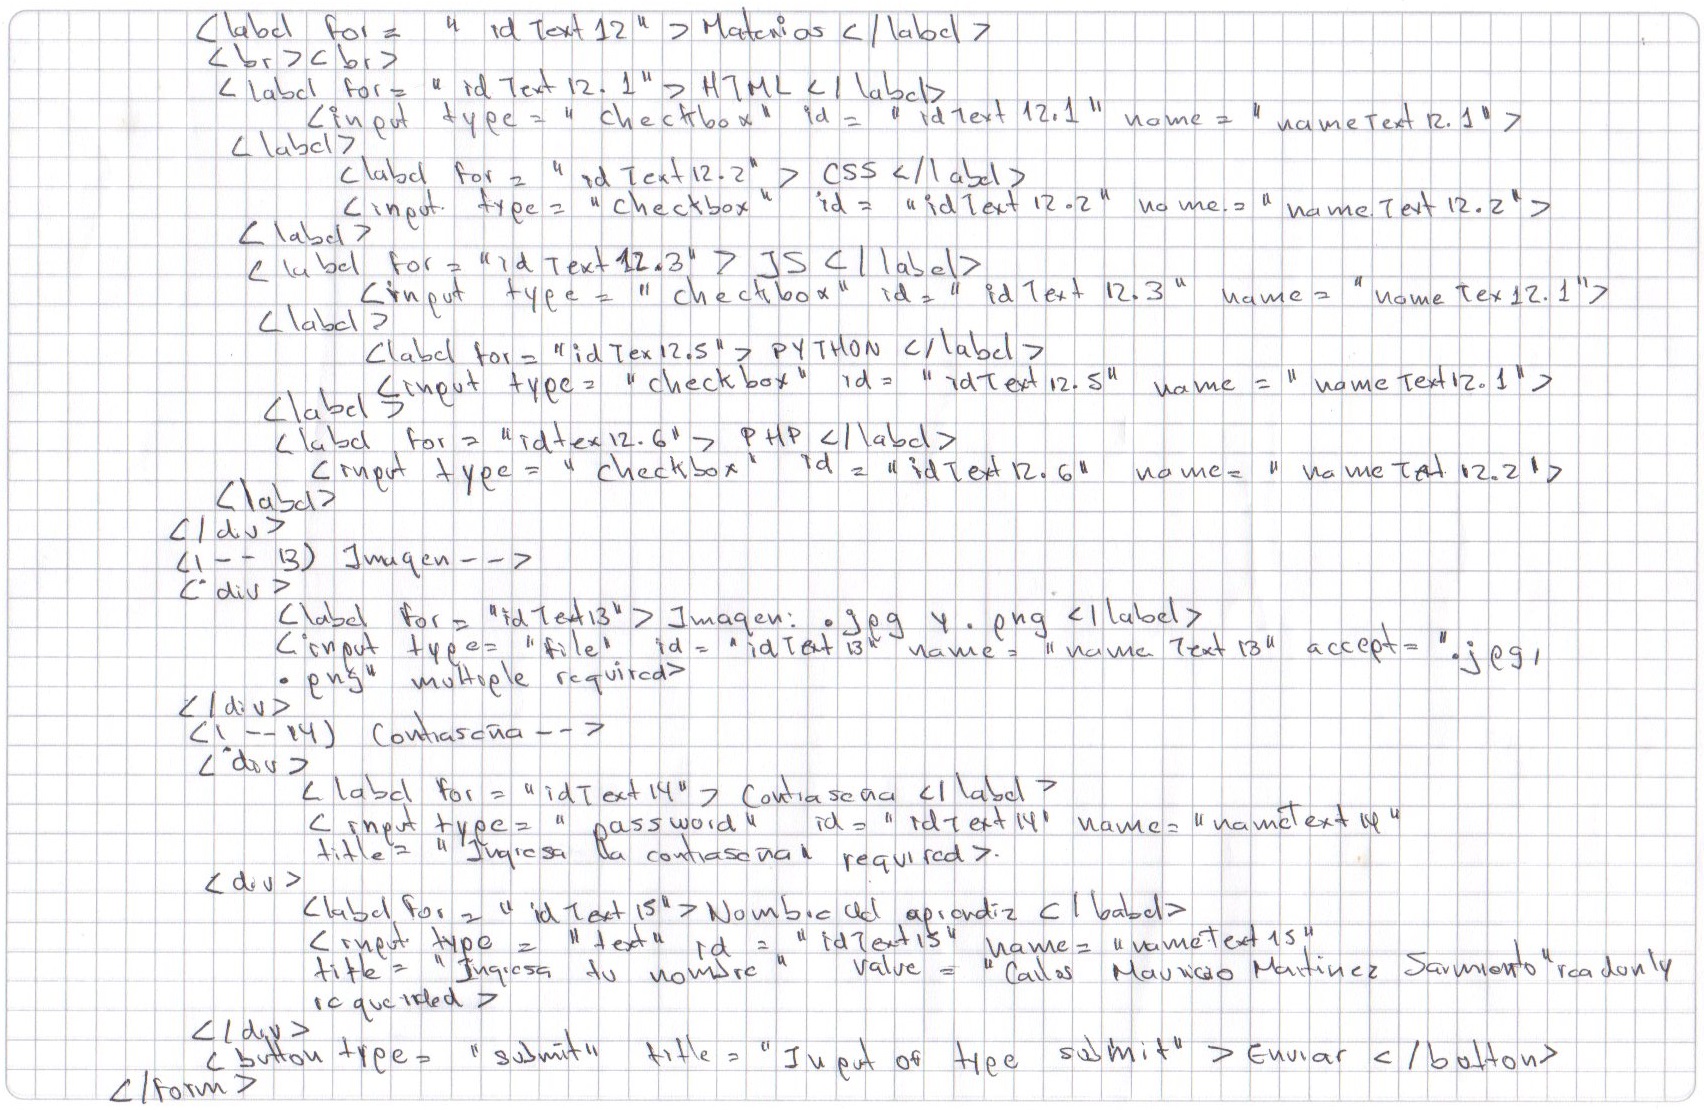 <label for = " idText12" > Materias </label>
<br><br>
<label for= " idText 12. 1" > HTML </label>
<input type = " checkbox" id = "idText 12.1" name = " nameText 12. 1" >
<label>
<label for = " idText12.2" > CSS </label>
<input type = "checkbox" id = "idText 12.2" name = " nameText 12.2" >
<label>
<label for = "idText12.3" > JS </label>
<input type = " checkbox" id = " idText 12.3" name = " nameTex12.1">
<label>
<label for = "idTex12.5"> PYTHON </label>
<input type = "checkbox" id = " idText12.5" name = " nameText12.1" >
<label>
<label for = "idtex12.6"> PHP </label>
<input type = " checkbox" id = "idText12.6" name = " nameText 12.2">
<label>
</div>
<!-- 13) Imagen -->
<div>
<label for = "idText13"> Imagen: .jpg y .png </label>
<input type= "file" id = "idText13" name = "nameText13" accept= ".jpg,
.png" multiple required>
</div>
<!-- 14) Contraseña -->
<div>
<label for = "idText14"> Contraseña </label>
<input type= " password" id = "idText14" name= "nameText14"
title = " Ingresa la contraseña" required>.
<div>
<label for = " idText15"> Nombre del aprendiz </babel>
<input type = "text" id = "idText15" name= "nameText15"
title = "Ingresa tu nombre " value = "Carlos Mauricio Martinez Sarmiento" readonly
requeirded >
</div>
<button type= "submit" title = "Input of type submit" > Enviar </botton>
</form>